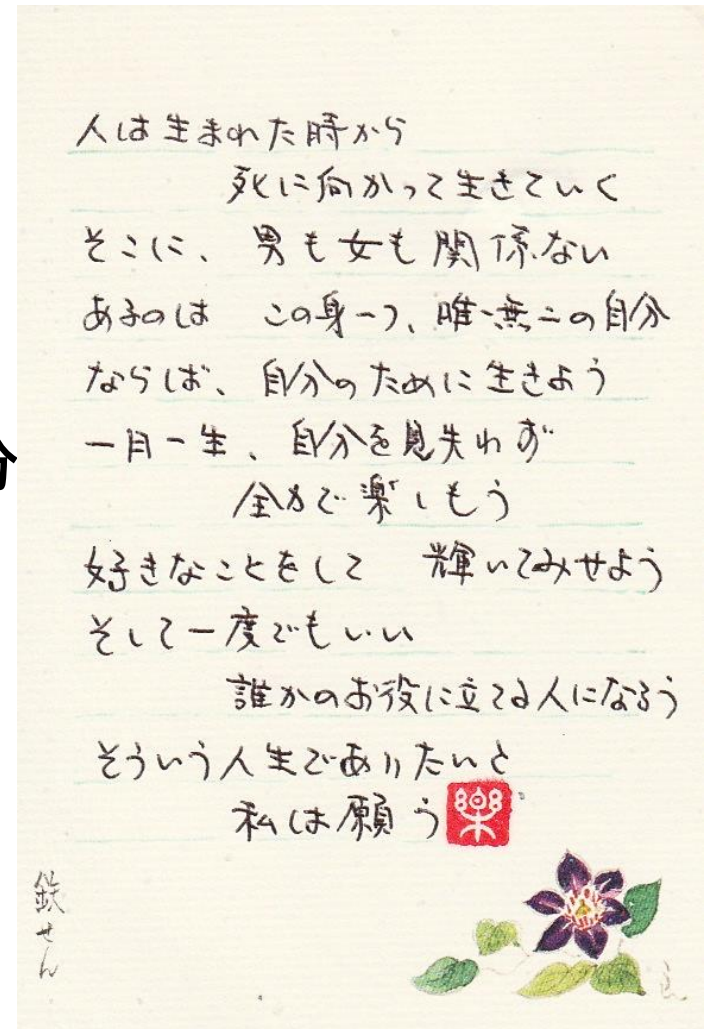 人は生まれた時から
死に向かって生きていく
そこに、男も女も関係ない
あるのは この身一つ、唯一無二の自分
ならば、自分のために生きよう
一日一生、自分を見失わず
全力で楽しもう
好きなことをして 輝いてみせよう
そして一度でもいい
誰かのお役に立てる人になろう
そういう人生でありたいと
私は願う
楽
鉄せん